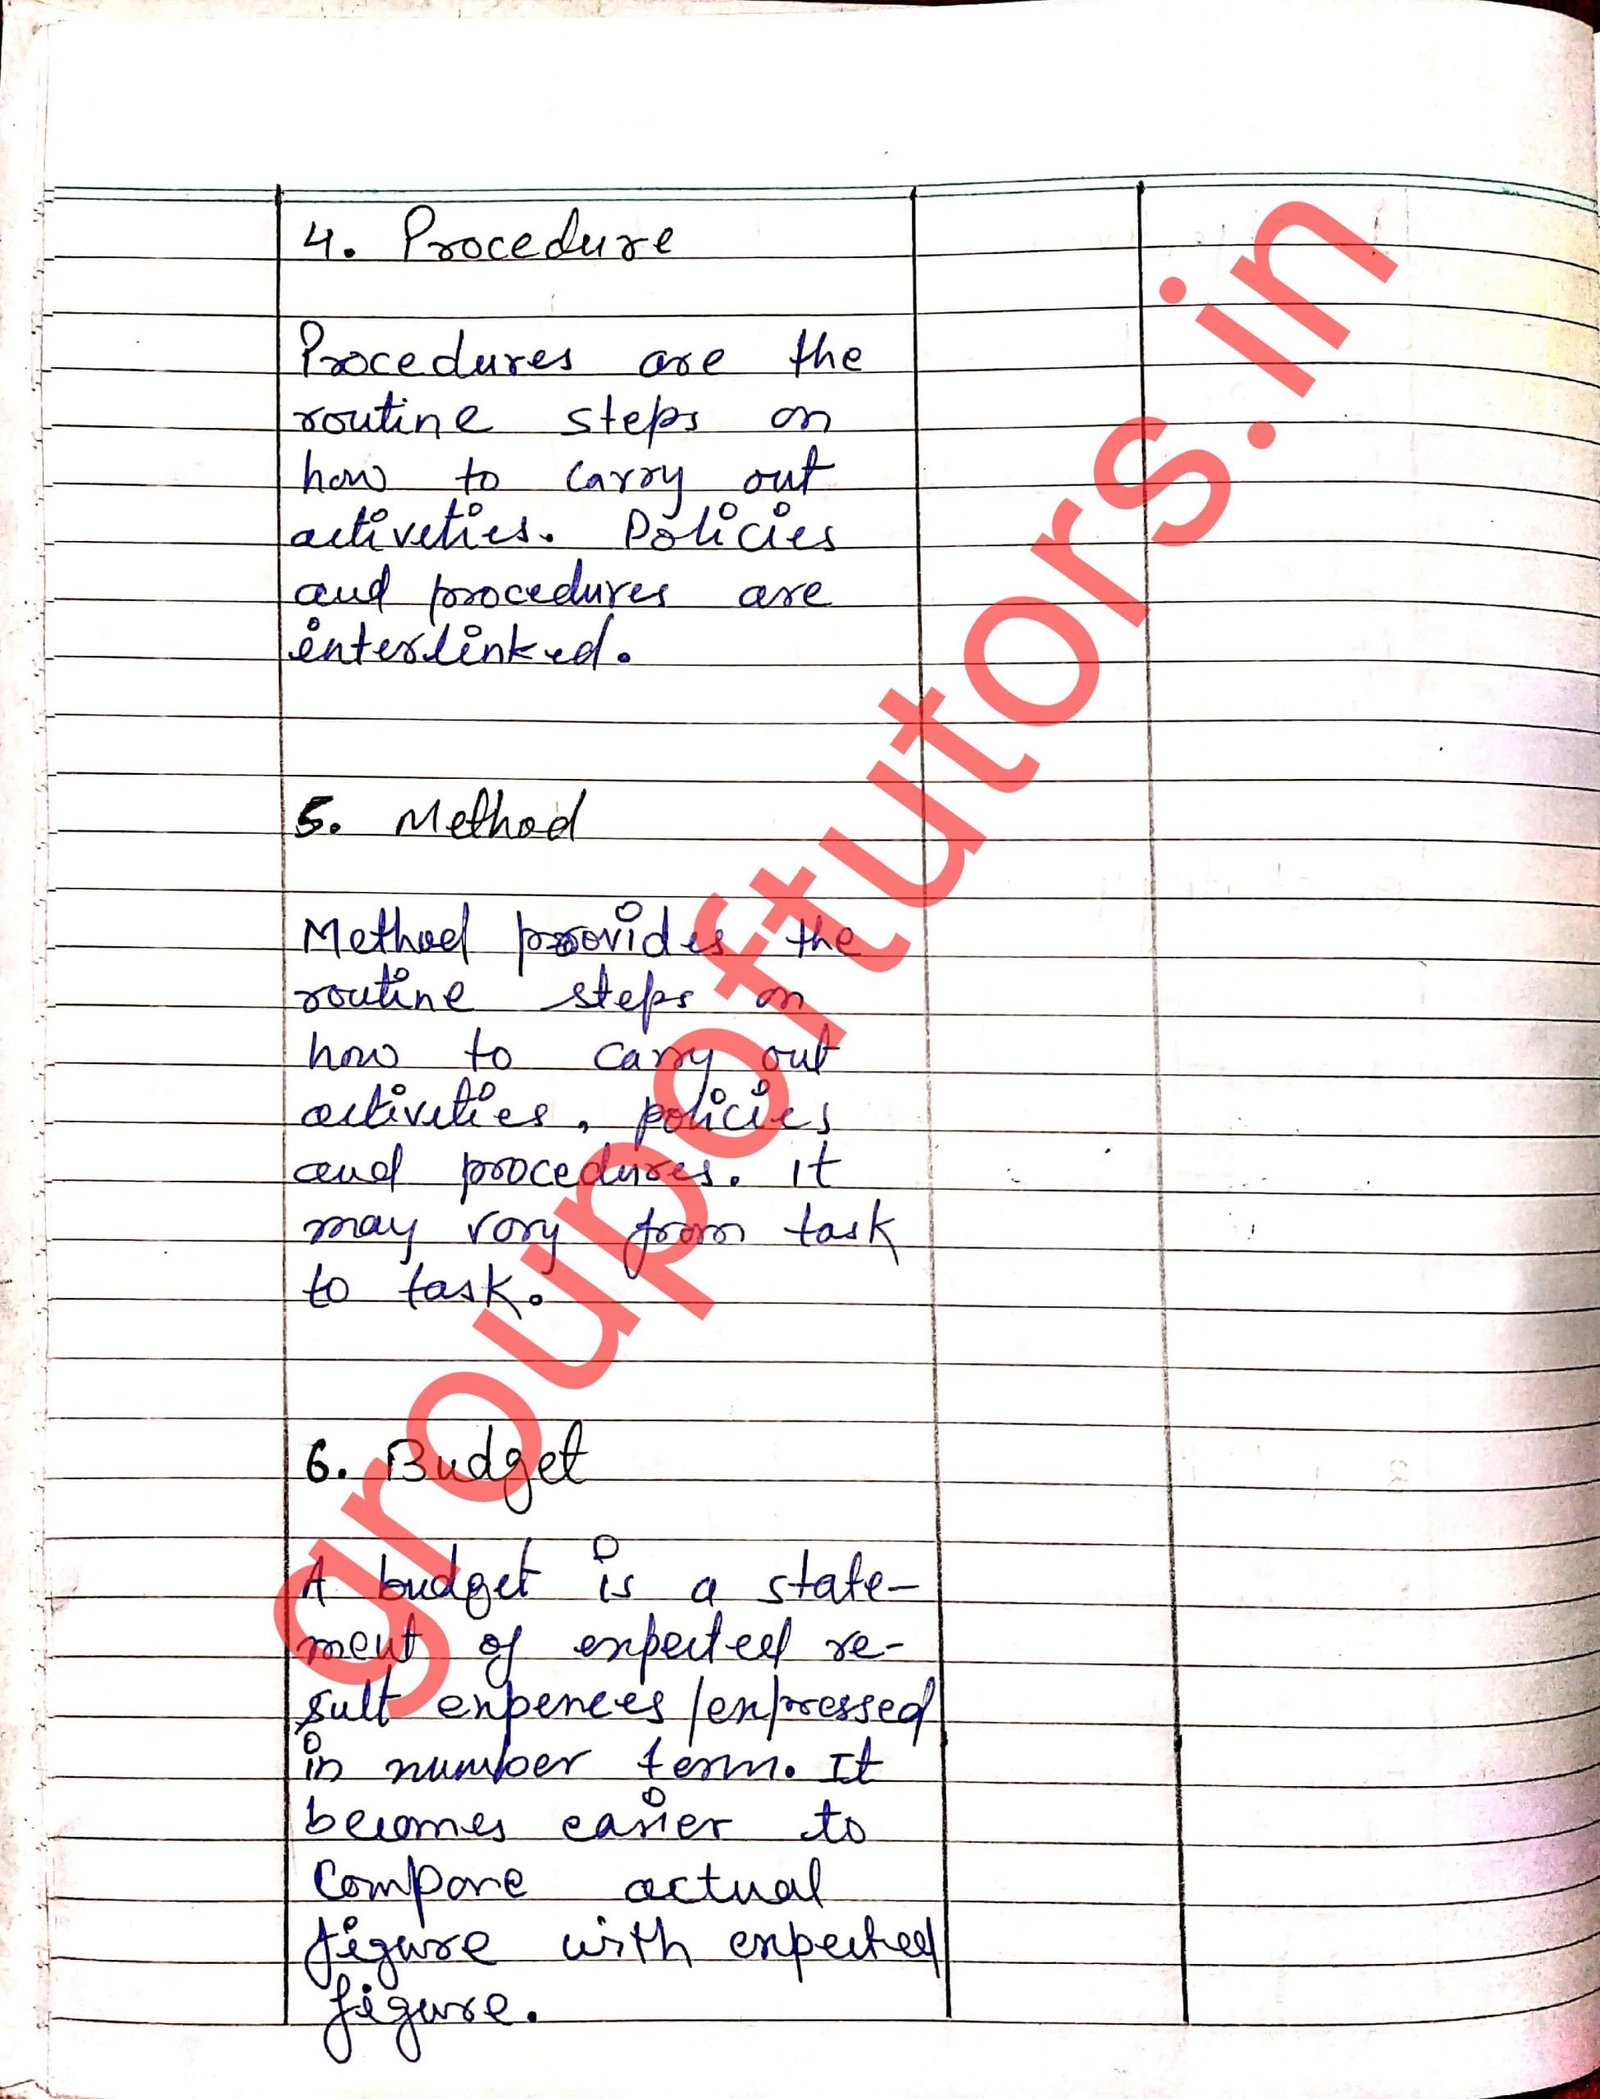 4. Procedure
Procedures are the
routine steps on
how to carry out
activeties. Policies
and procedures are
interlinked.
5. Method
Method provides the
routine steps on
how to carry out
activeties, policies
and procedures. it
may vory from task
to task.
6. Budget
A budget is a state-
ment of expected re-
sult expences/expressed
in number term. It
becomes easier to
Compare actual
figure with expected
figure.
groupoftutors.in